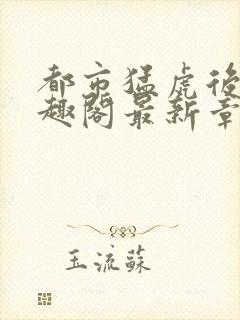 都市猛虎後
趣閣最新章
玉流蘇